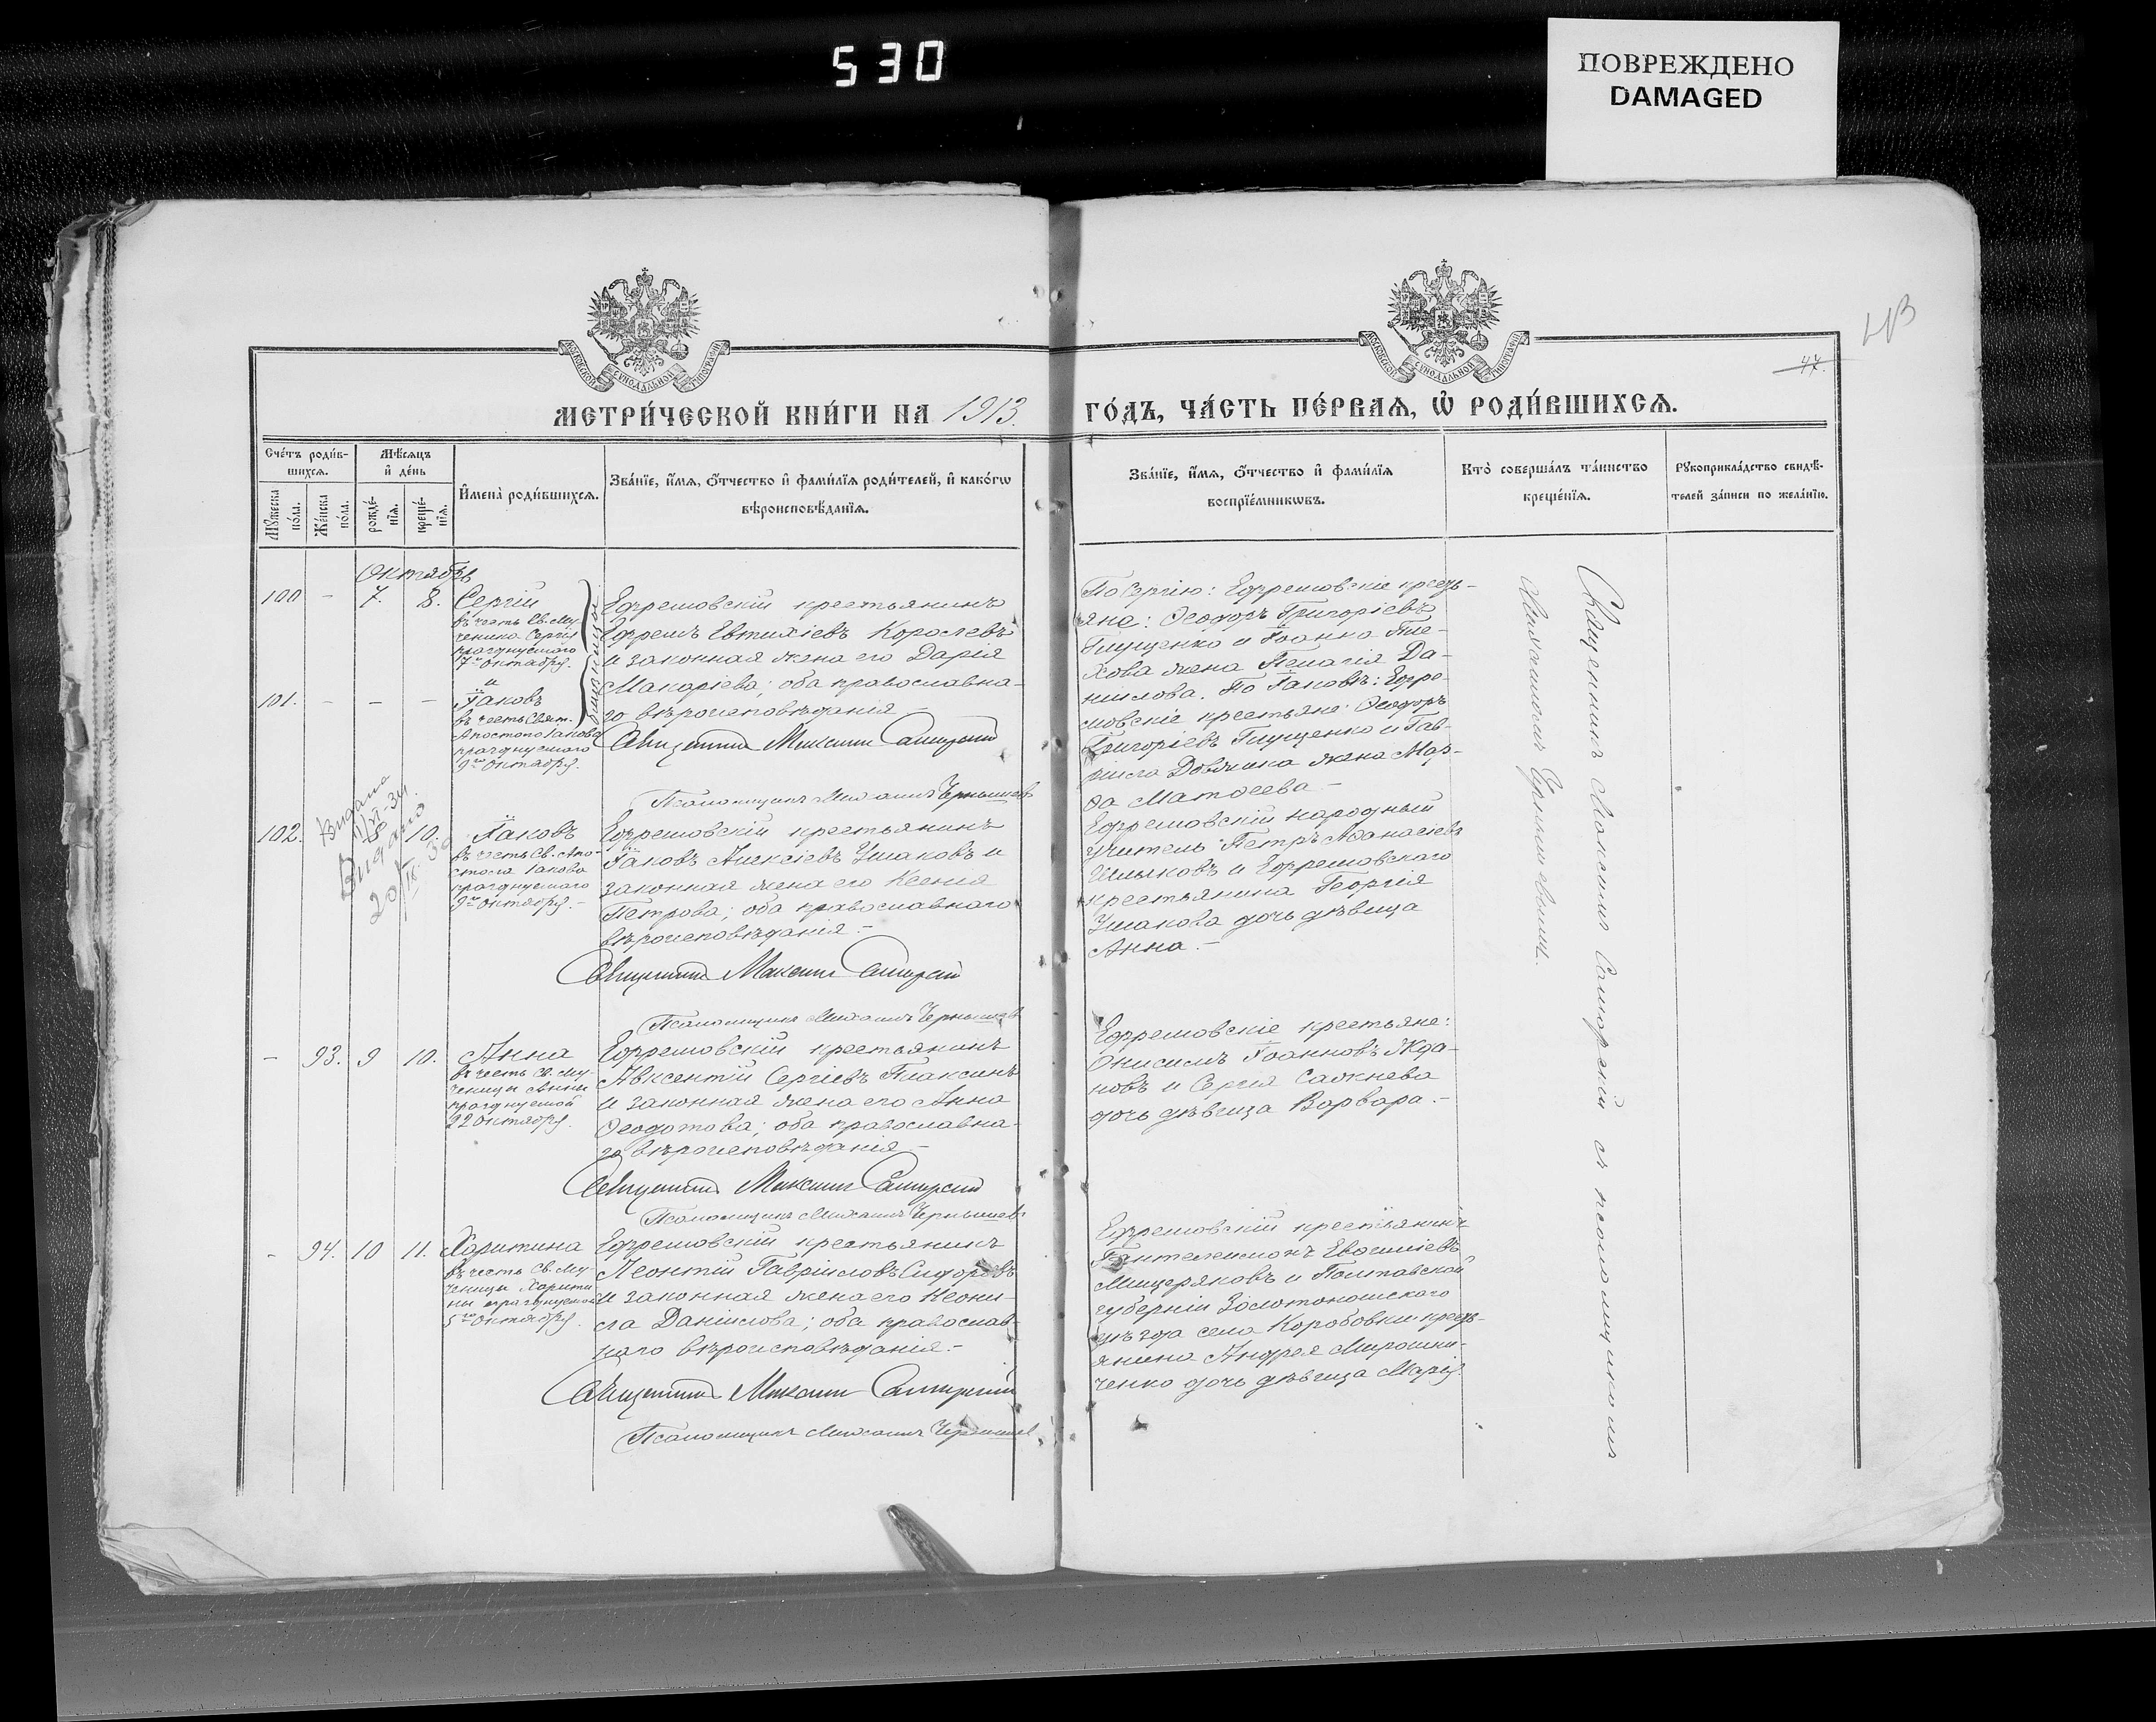 530
ПОВРЕЖДЕНО
DAMAGED
МОСКОВСКОЙ СѴНОДАЛЬНОЙ ТИПОГРАФІИ
МОСКОВСКОЙ СѴНОДАЛЬНОЙ ТИПОГРАФІИ
44.
МЕТРИ́ЧЕСКОЙ КНИ́ГИ НА 1913.
ГО́ДЪ, ЧА́СТЬ ПЕ́РВАѦ, Ѡ҆ РОДИ́ВШИХСѦ.
Сче́тъ роди́в-
шихсѧ.
Мужеска по́ла.
Же́нска по́ла.
Мѣ́сѧцъ
и҆ де́нь
рожде́-
нїѧ.
креще́-
нїѧ.
И҆мена̀ роди́вшихсѧ.
Зва́нїе, и҆́мѧ, ѻ҆́тчество и҆ фами́лїѧ роди́телей, и҆ како́гѡ
вѣроисповѣ́данїѧ.
Зва́нїе, и҆́мѧ, ѻ҆́тчество и҆ фами́лїѧ
воспрїе́мникѡвъ.
Кто̀ соверша́лъ та́инство
креще́нїѧ.
Рꙋкоприкла́дство свидѣ́-
телей за́писи по жела́нїю.
Октябрь
100 - 7. 8. Сергій
въ честь Св. Му-
ченика Сергія
празднуемаго
7го Октября.
и
101. - - - Іаковъ
въ честь Свят.
Апостола Іакова
празднуемаго
9го Октября.
близнецы
Ефремовскій крестьянинъ
Ефремъ Евтихіевъ Королевъ
и законная жена его Дарія
Макаріева; оба православна-
го вѣроисповѣданія -
Священникъ Максим Самурскій
Псаломщикъ Михаилъ Чернышевъ
По Сергію: Ефремовскіе кресть-
яне: Ѳеодоръ Григоріевъ
Глущенко и Іоанна Пле-
хова жена Пелагія Да-
нилова. По Іакову: Ефре-
мовскіе крестьяне: Ѳеодоръ
Григоріевъ Глущенко и Гав-
ріила Довжика жена Мар-
ѳа Матѳеева -
102. 10. Іаковъ
въ честь Св. Апо-
стола Іакова
празднуемаго
9го Октября. -
Видана
Видано
20/IX
Ефремовскій крестьянинъ
Іаковъ Алексіевъ Ушаковъ и
законная жена его Ксенія
Петрова; оба православнаго
вѣроисповѣданія. -
Священникъ Максим Самурскій
Псаломщикъ Михаилъ Чернышевъ
Ефремовскій народный
учитель Петръ Аѳанасіевъ
и Ефремовскаго
крестьянина Георгія
Ушакова дочь дѣвица
Анна. -
- 93. 9 10. Анна
въ честь Св. му-
ченицы Анны
празднуемой
22 Октября.
Ефремовскій крестьянинъ
Авксентій Сергіевъ Плаксинъ
и законная жена его Анна
Ѳеодотова; оба православна-
го вѣроисповѣданія -
Священникъ Максим Самурскій
Псаломщикъ Михаилъ Чернышевъ
Ефремовскіе крестьяне:
Онисимъ Іоанновъ Жда-
новъ и Сергія Сажнева
дочь дѣвица Варвара. -
- 94. 10 11. Харитина
въ честь Св. Му-
ченицы Харити-
ны празднуемой
5го Октября.
Ефремовскій крестьянинъ
Леонтій Гавріиловъ Сидоровъ
и законная жена его Неони-
ла Даніилова; оба православ-
наго вѣроисповѣданія. -
Священникъ Максим Самурскій
Псаломщикъ Михаилъ Чернышевъ
Ефремовскій крестьянинъ
Пантелеимонъ Евѳиміевъ
Мищеряковъ и Полтавской
губерніи Золотоношскаго
уѣзда села Коробовки кресть-
янина Андрея Мирошни-
ченко дочь дѣвица Марія.
Священникъ Максимъ Самурскій съ псаломщикомъ
Михаиломъ Чернышевымъ.